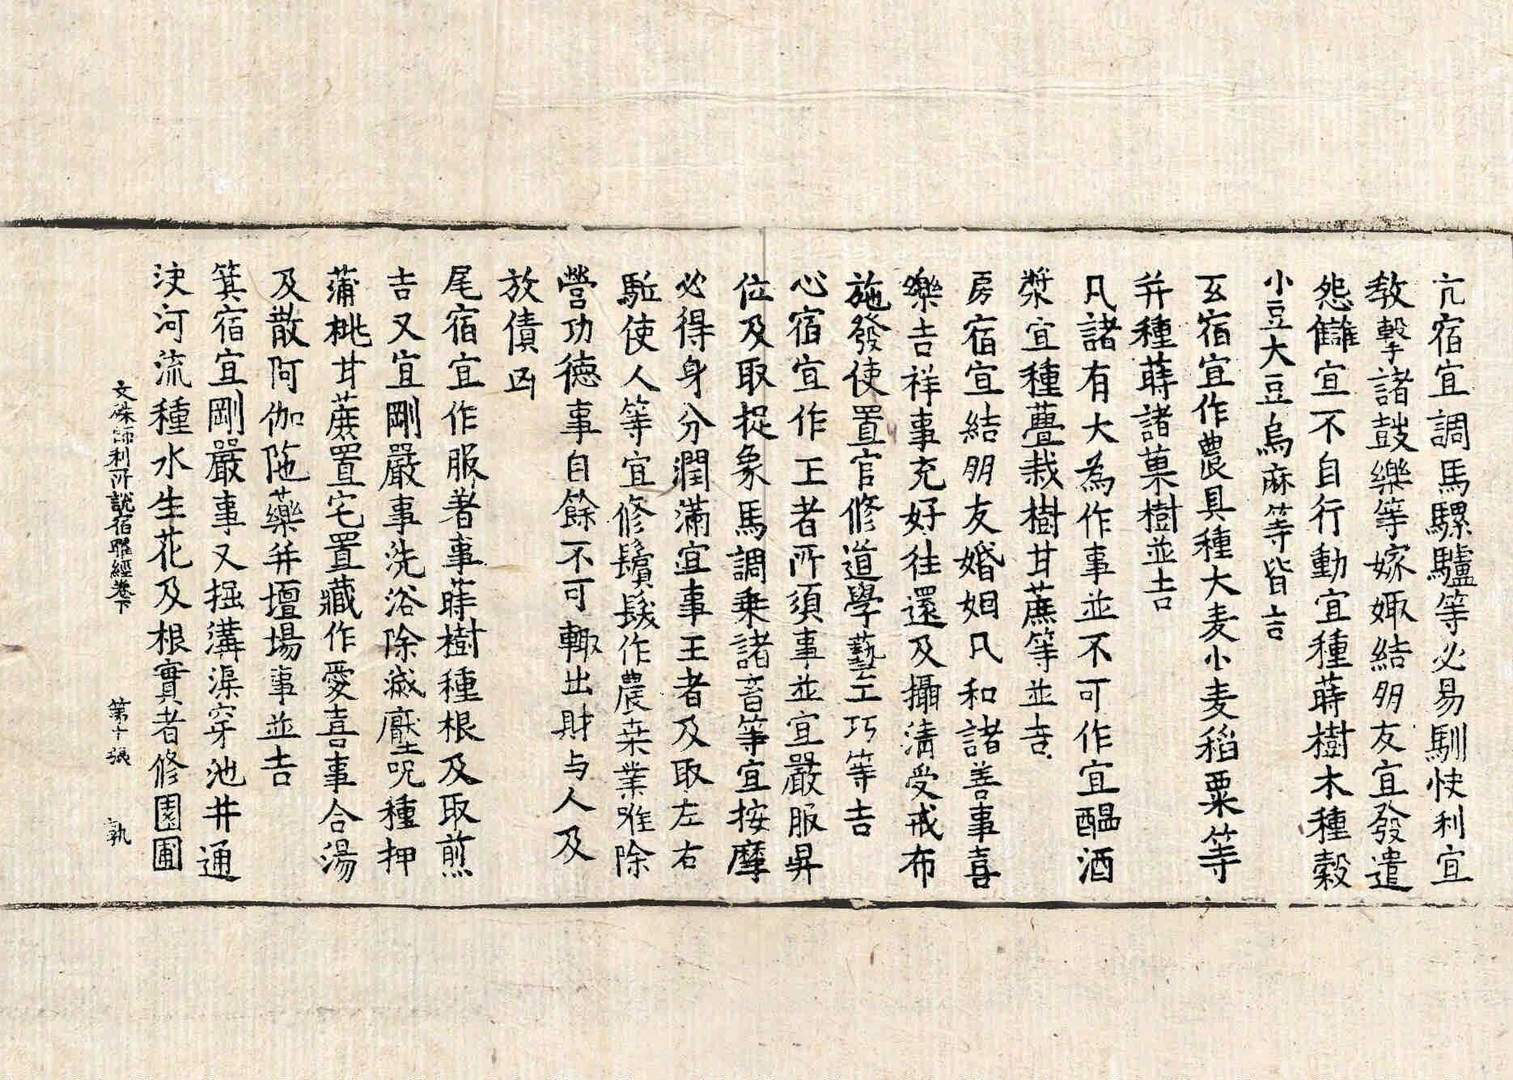 亢宿宜調馬騾驢等必易馴快利宜
教擊諸鼓樂等嫁娵結朋友宜發遣
怨讎宜不自行動宜種蒔樹木種穀
小豆大豆烏麻等皆吉
互宿宜作農具種大麦小麦稻粟等
并種蒔諸菓樹並吉
凡諸有大為作事並不可作宜醞酒
漿宜種疊栽樹甘蔗等並吉
房宿宜結朋友婚姻凡和諸善事喜
樂吉祥事充好往還及攝淸受戒布
施發使置官修道學藝工巧等吉
心宿宜作王者所須事並宜嚴服昇
位及取捉象馬調乗諸畜等宜按摩
必得身分潤滿宜事王者及取左右
駈使人等宜修鬚髮作農桒業唯除
營功德事自餘不可輙出財与人及
放債凶
尾宿宜作服著事蒔樹種根及取煎
吉又宜剛嚴事洗浴除滅壓呪種押
蒲桃甘蔗置宅置藏作愛喜事合湯
及散阿伽陁藥并壇場事並吉
箕宿宜剛嚴事又掘溝渠穿池井通
决河流種水生花及根實者修園圃
文殊師利所說宿曜經卷下 第十張 孰